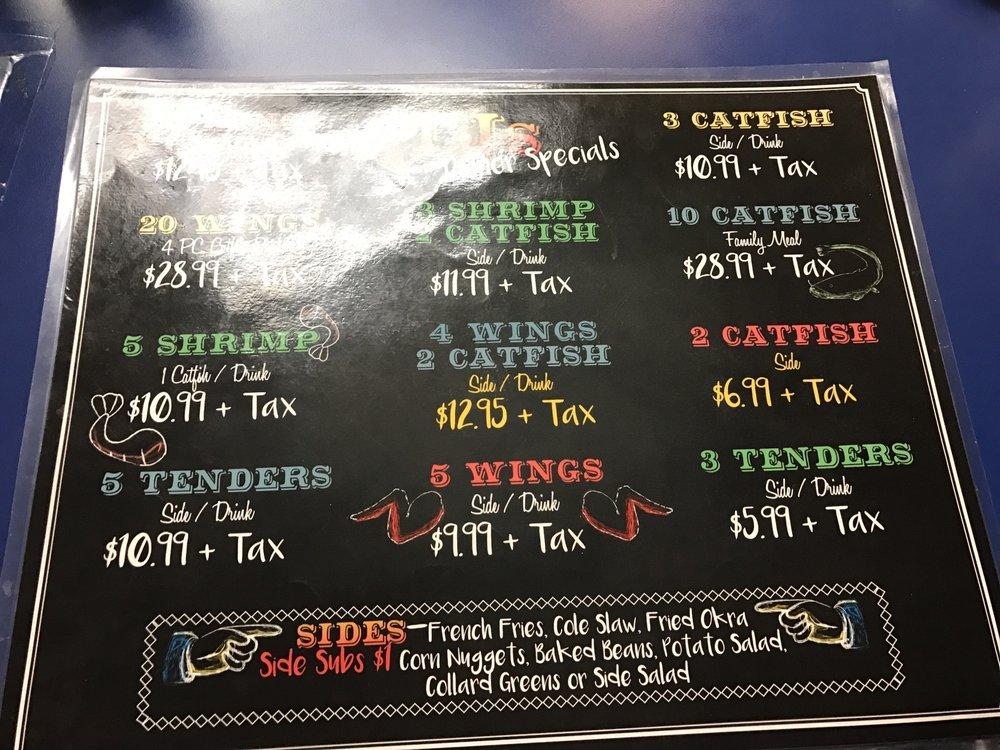 Js
Specials
+ Tax
20 WINGS
4 PC
$28.99 + Tax
5 SHRIMP
1 Catfish / Drink
$10.99 + Tax
5 TENDERS
Side / Drink
$10.99 + Tax
SHRIMP
CATFISH
Side / Drink
$11.99 + Tax
4 WINGS
2 CATFISH
Side / Drink
$12.95 + Tax
5 WINGS
Side / Drink
$9.99 + Tax
3 CATFISH
Side / Drink
$10.99 + Tax
10 CATFISH
Family Meal
$28.99 + Tax
2 CATFISH
Side
$6.99 + Tax
3 TENDERS
Side / Drink
$5.99 + Tax
SIDES-French Fries, Cole Slaw, Fried Okra
Side Subs $1 Corn Nuggets, Baked Beans, Potato Salad,
Collard Greens or Side Salad